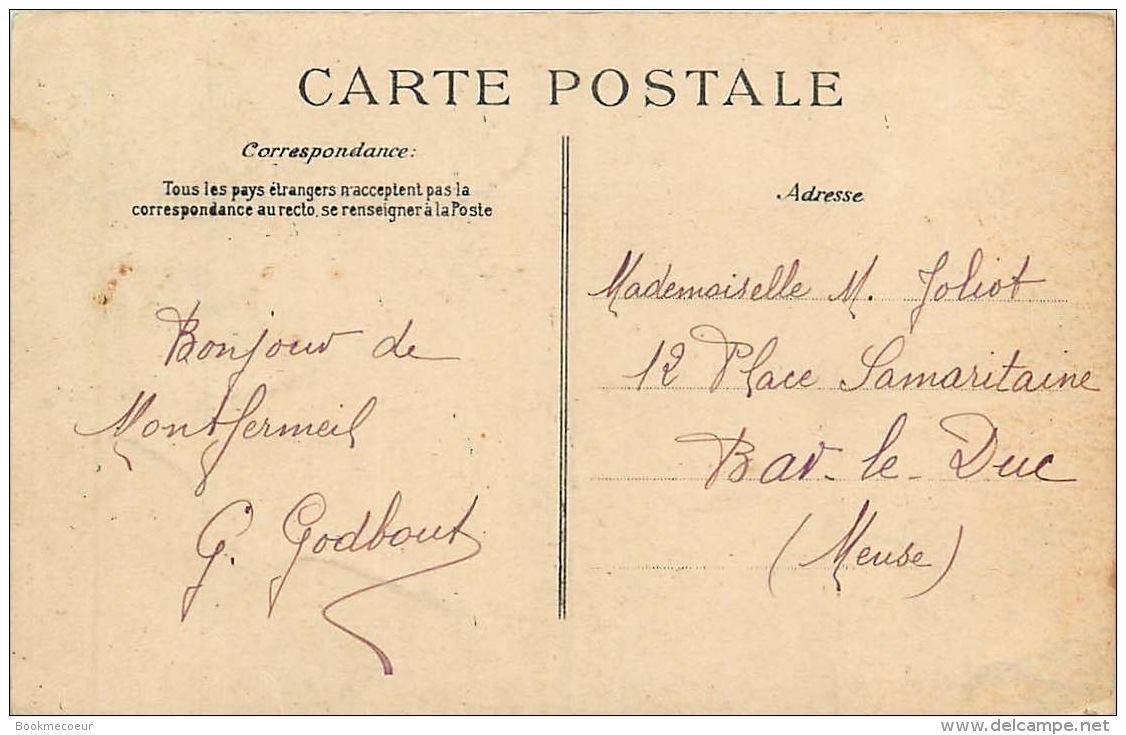 CARTE POSTALE
Correspondance:
Tous les pays étrangers n'acceptent pas la
correspondance au recto, se renseigner à la Poste
Bonjour de
Montfermeil
G. Godbout
Adresse
Mademoiselle M. Joliot
12 Place Samaritaine
Bar-le-Duc
(Meuse)
Bookmecoeur
www.delcampe.net